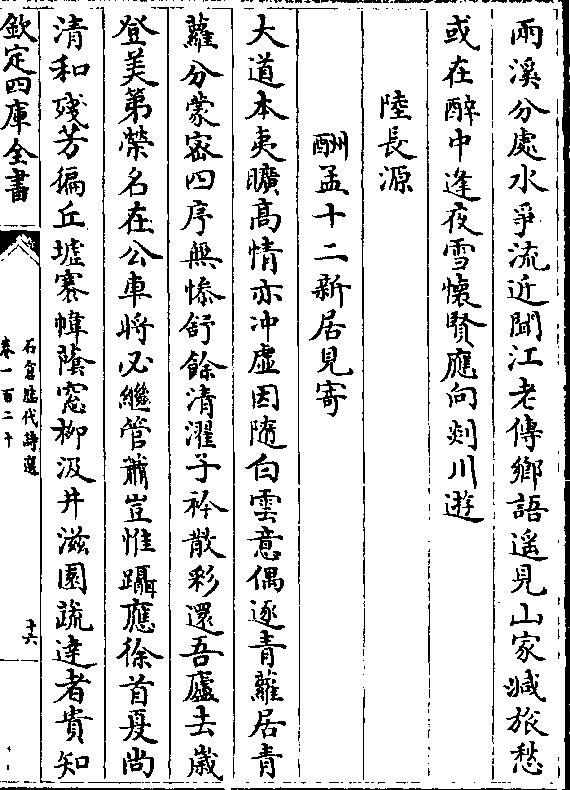 兩溪分處水爭流近聞江老傳鄉語遥見山家減旅愁
或在醉中逢夜雪懷賢應向剡川遊
陸長源
酬孟十二新居見寄
大道本夷曠高情亦冲虛因隨白雲意偶逐青蘿居青
蘿分蒙密四序無慘舒餘清濯子衿散彩還吾廬去歲
登美第榮名在公車將必繼管蕭豈惟躡應徐首夏尚
清和殘芳徧丘墟褰幃蔭窓柳汲井滋園蔬達者貴知
欽定四庫全書
石倉歷代詩選
卷一百二十
十六